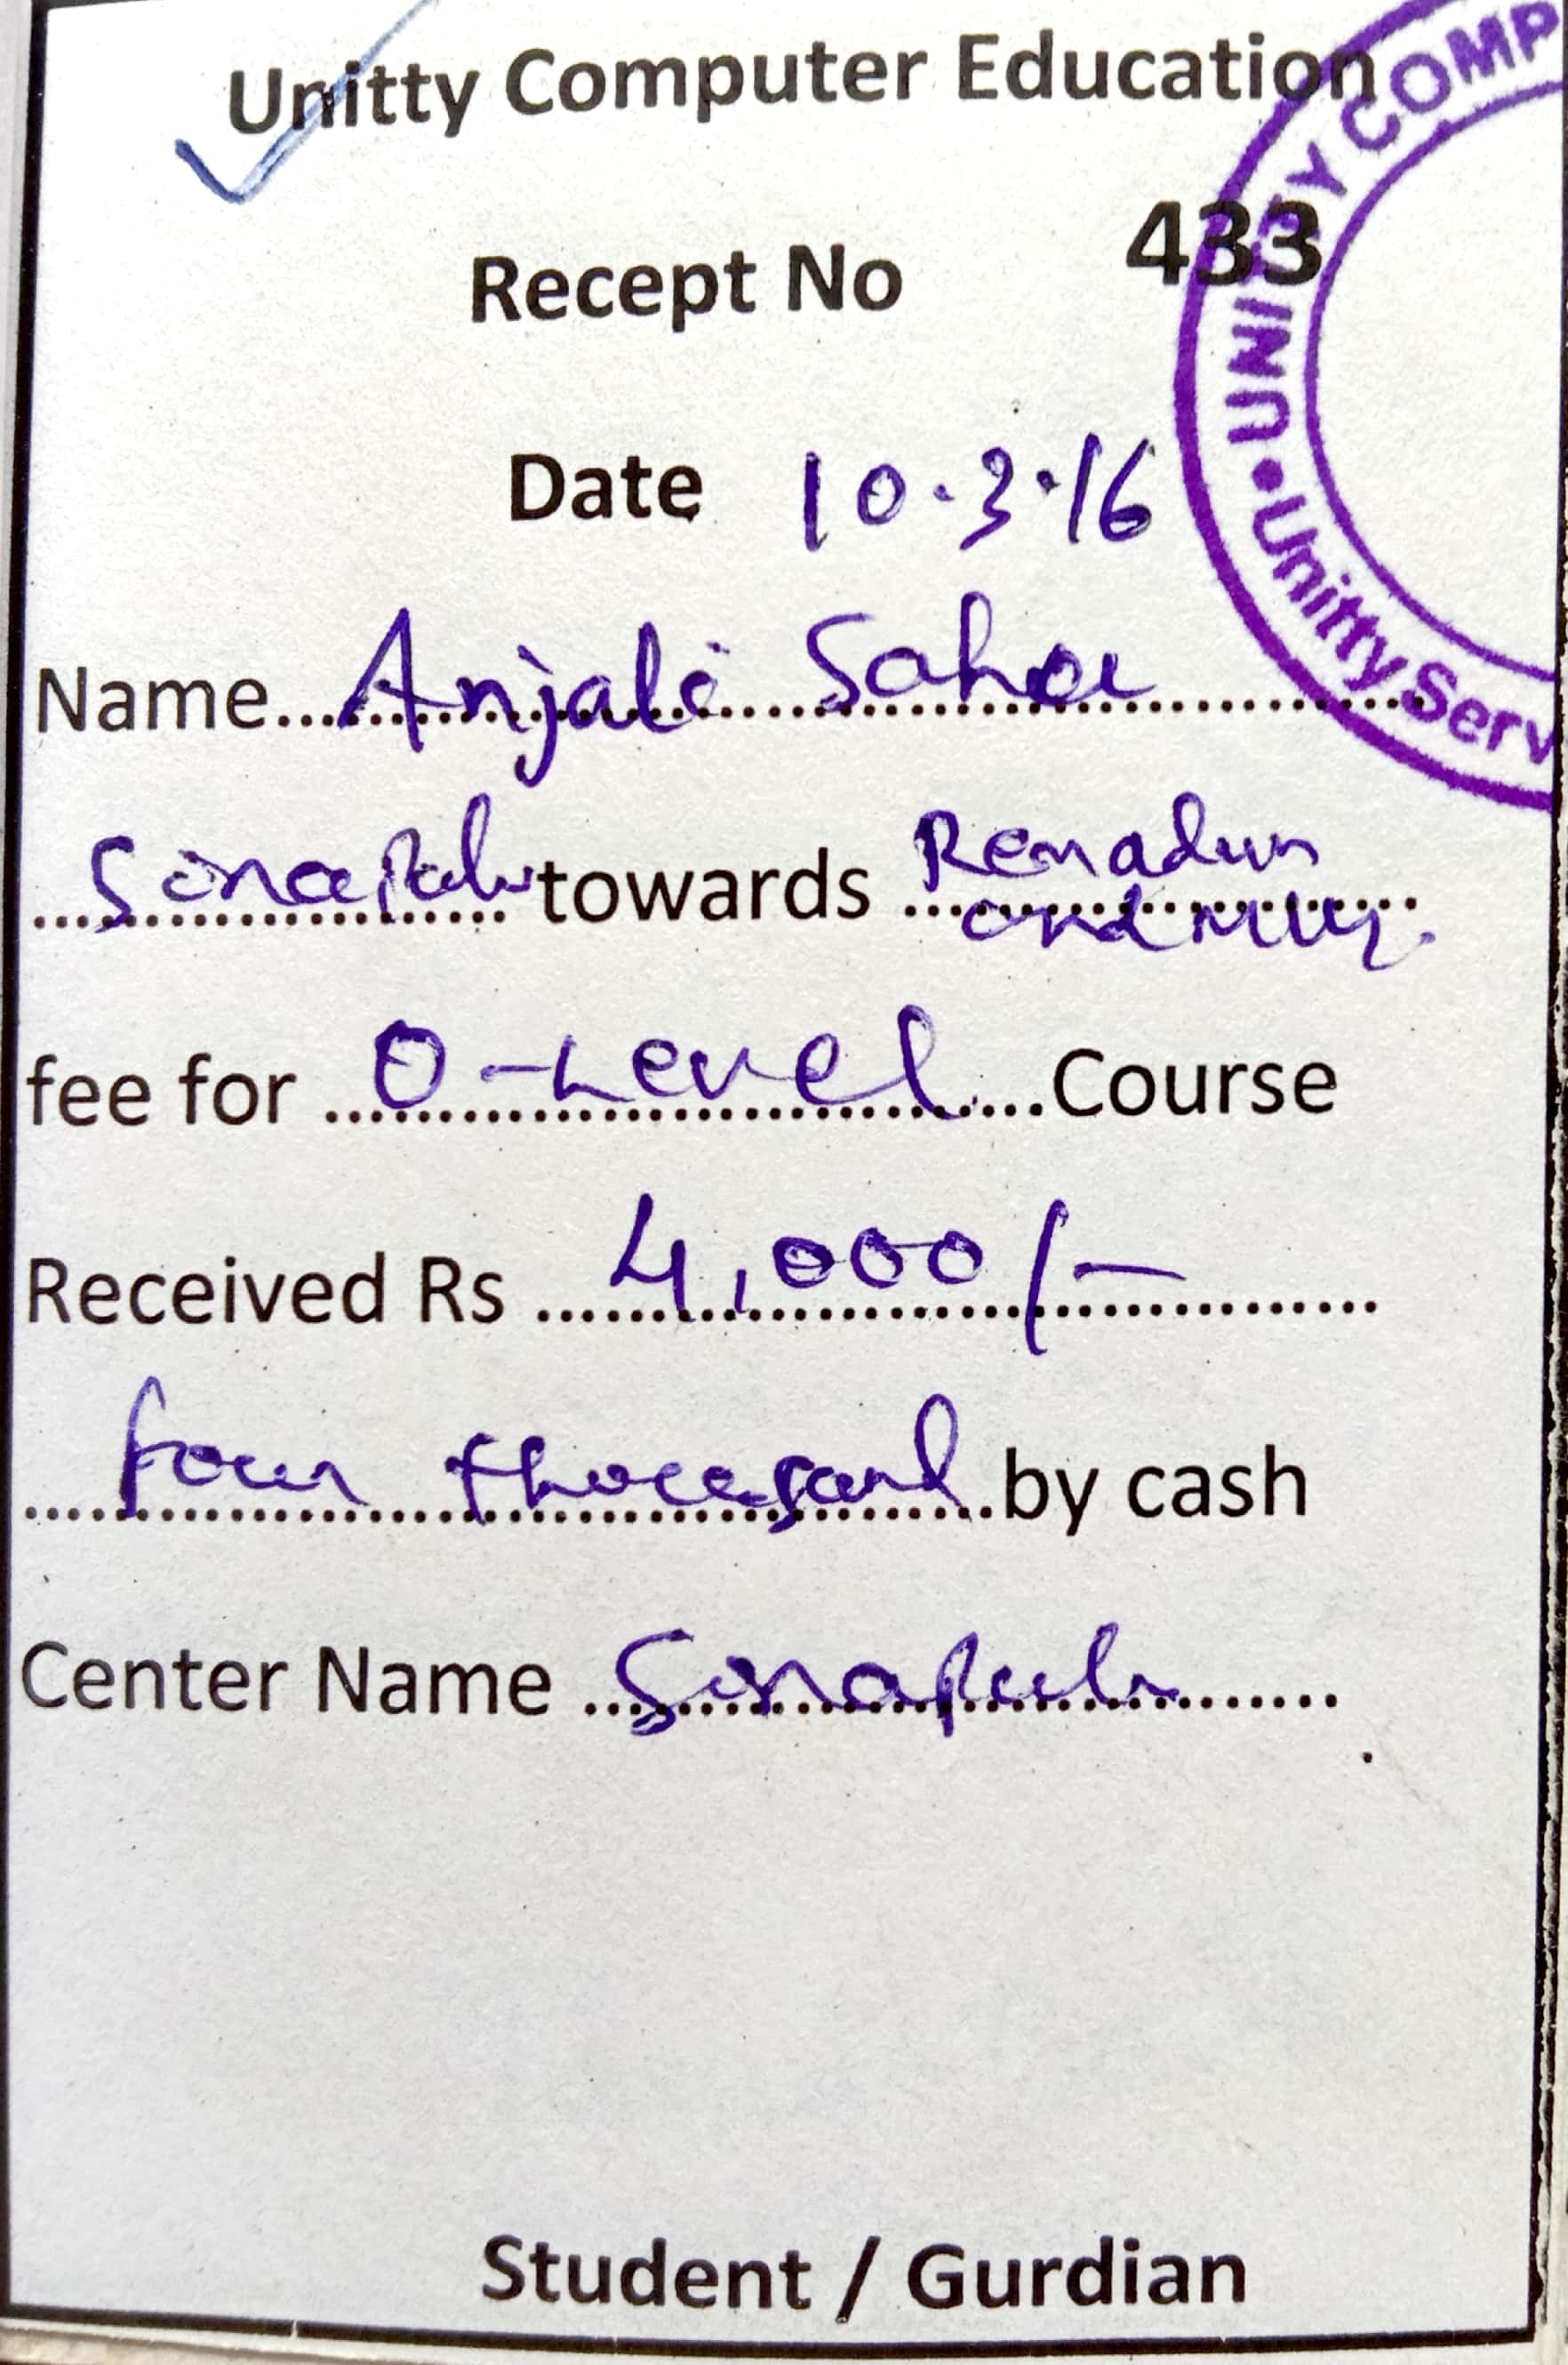 Unitty Computer Education
Recept No 433
Date 10.3.16
Name Anjali Saha
Sonapuli towards
fee for O-Level Course
Received Rs 4,000/-
four thousand by cash
Center Name Sonapuli
Student / Gurdian
UNITTY COMP
Unitty Serv